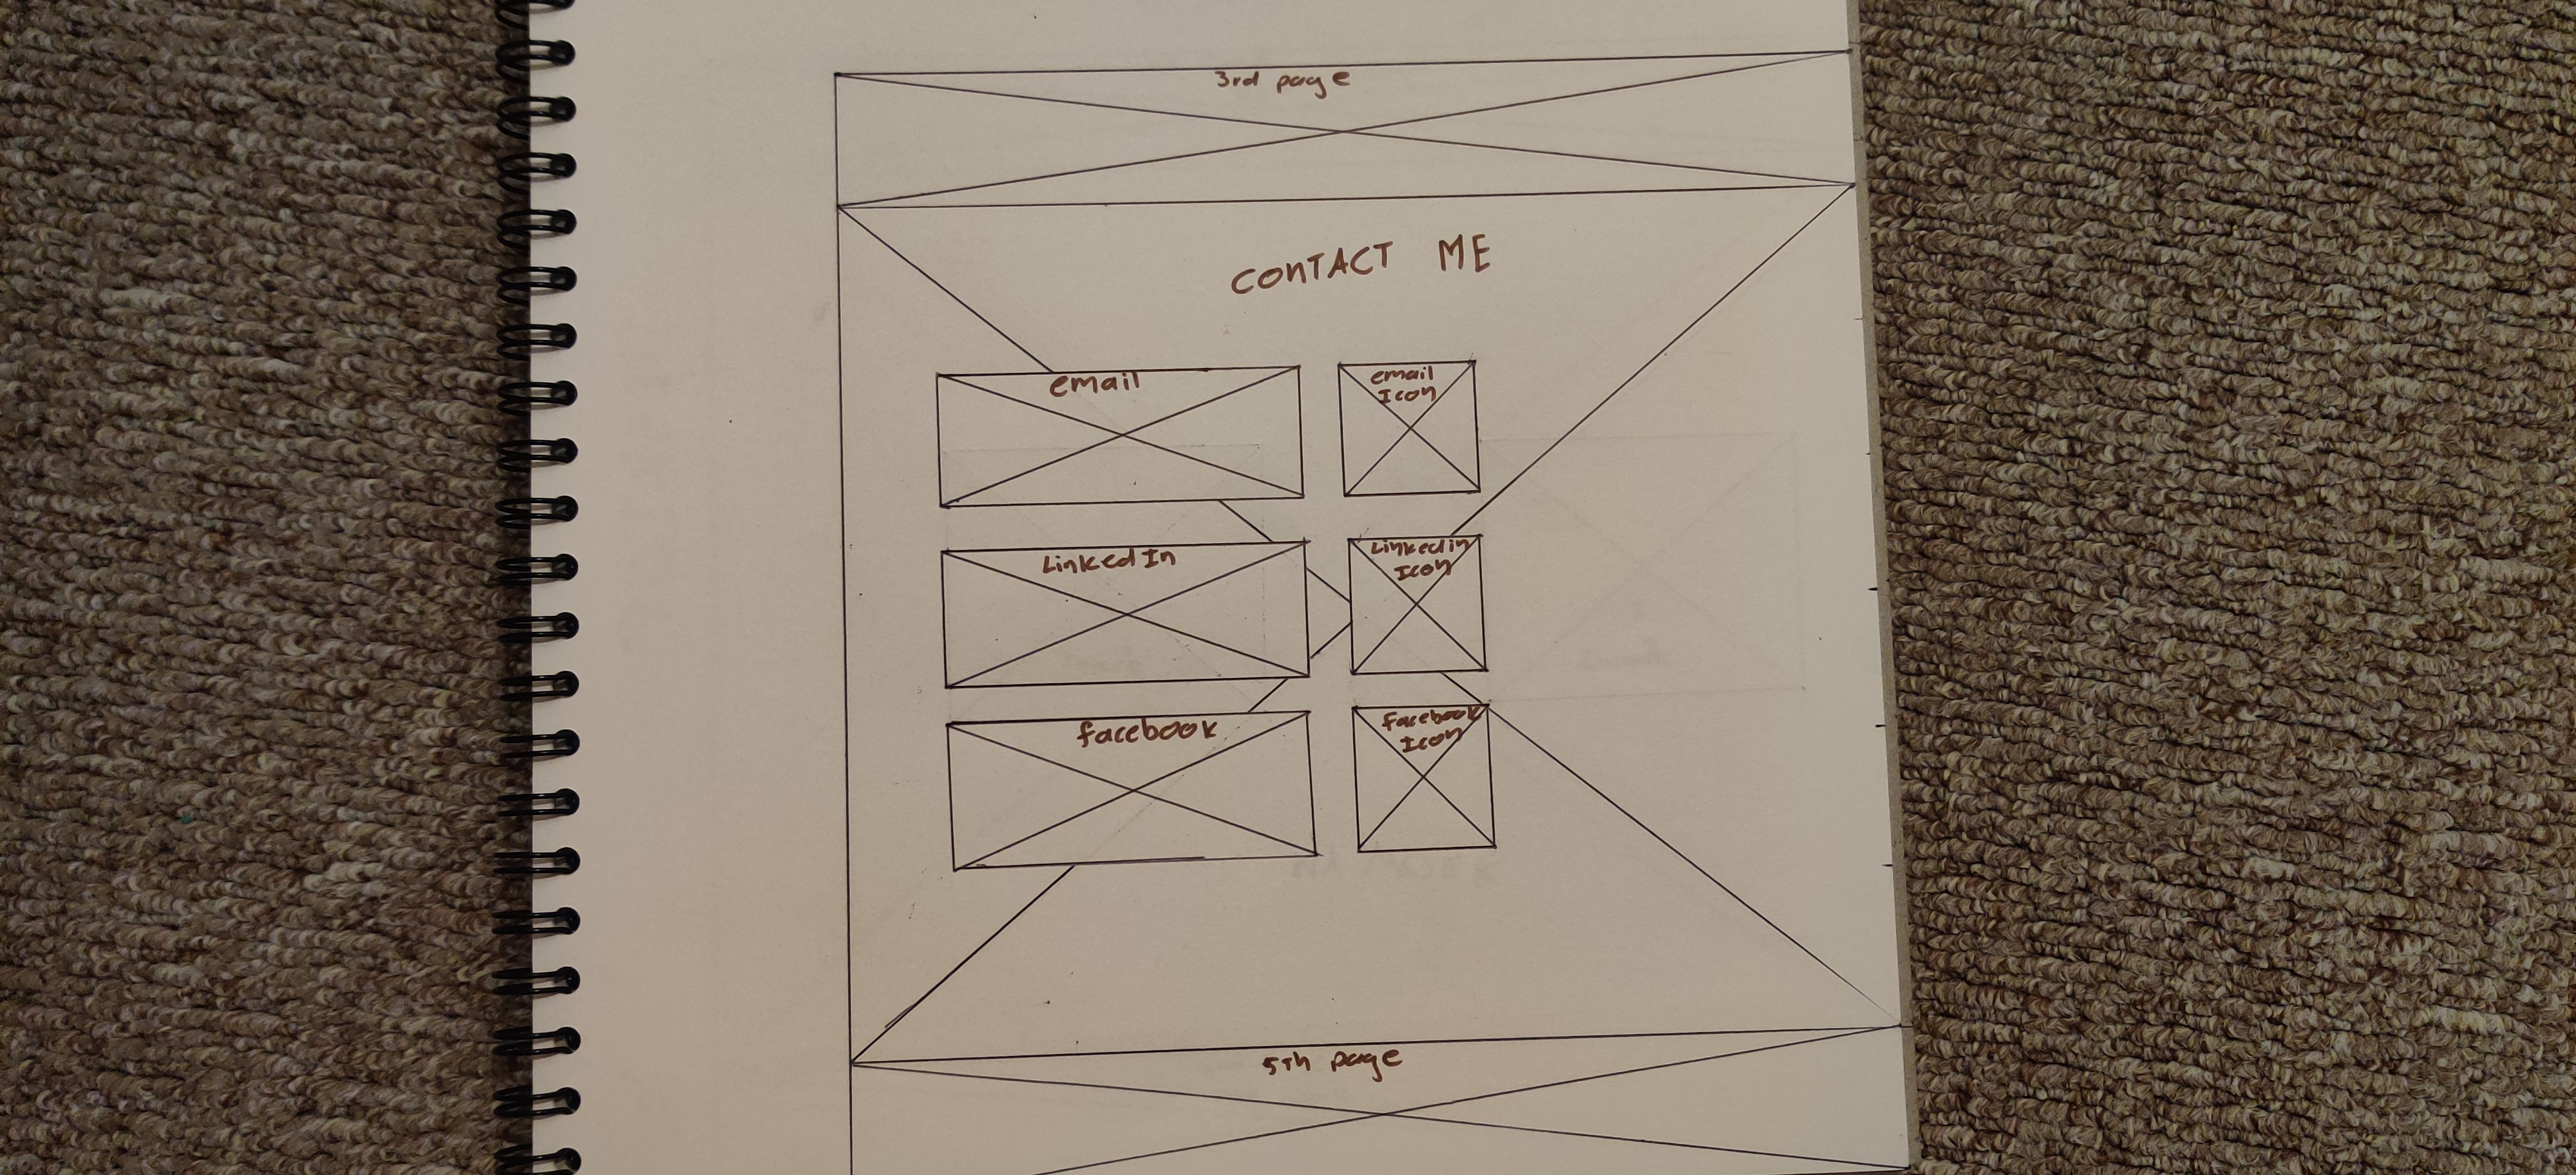 3rd page
CONTACT ME
email
email
Icon
LinkedIn
Linkedin
Icon
facebook
facebook
Icon
5th page